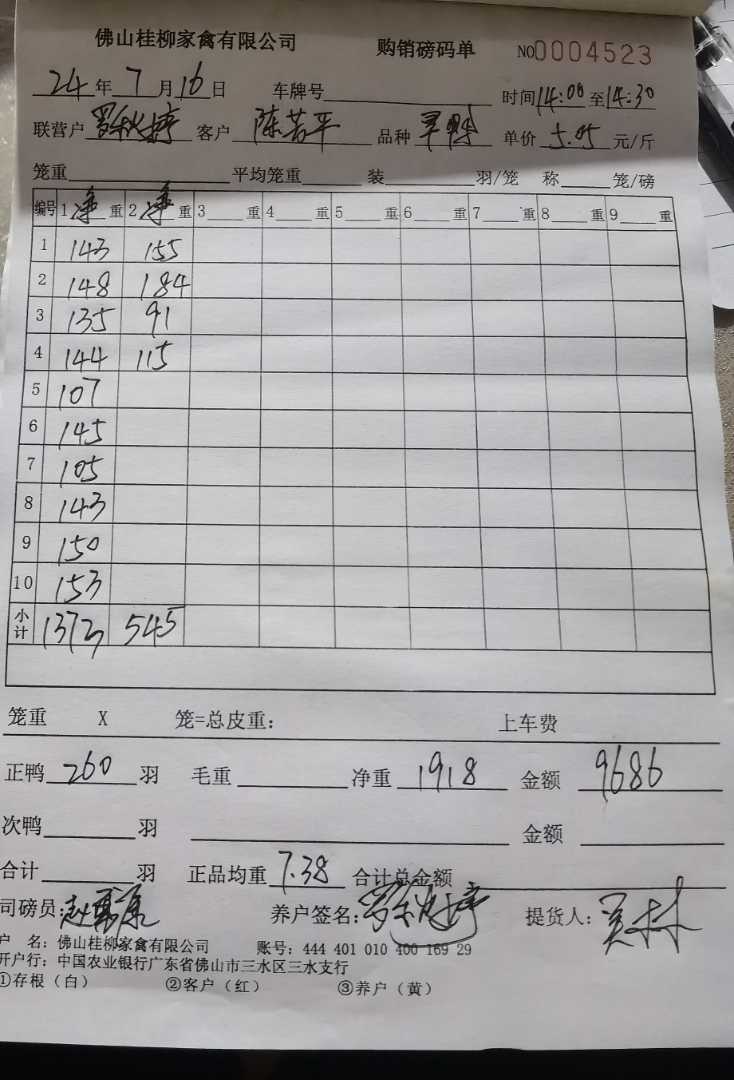 佛山桂柳家禽有限公司 购销磅码单 NO0004523
24年7月16日 车牌号 时间14:00至14:30
联营户 罗秋婷 客户 陈若平 品种 单价 5.05 元/斤
笼重 平均笼重 装 羽/笼 称 笼/磅
编号 1净重 2净重 3 重 4 重 5 重 6 重 7 重 8 重 9 重
1 143 155
2 148 184
3 135 91
4 144 115
5 107
6 145
7 105
8 143
9 150
10 153
小计 1373 545
笼重 X 笼=总皮重: 上车费
正鸭 260 羽 毛重 净重 1918 金额 9686
次鸭 羽 金额
合计 羽 正品均重 7.38 合计总金额
司磅员: 养户签名: 罗秋婷 提货人:
户 名: 佛山桂柳家禽有限公司 账号: 444 401 010 400 169 29
开户行: 中国农业银行广东省佛山市三水区三水支行
①存根(白) ②客户(红) ③养户(黄)